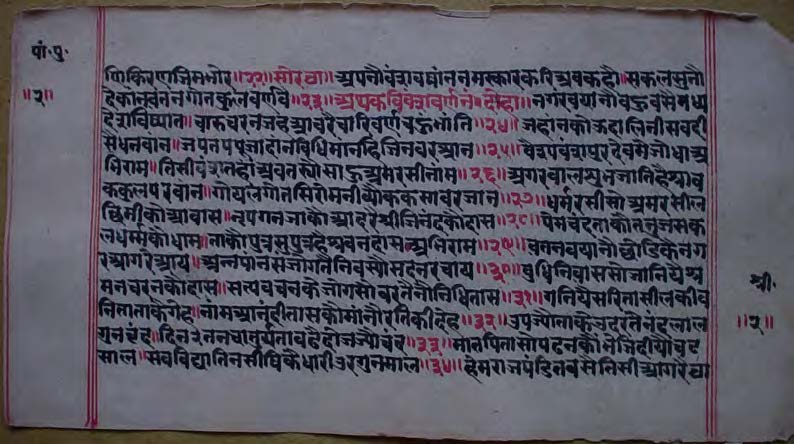 पां.पु.
॥२॥
णिकिरणजिमभोर॥२२॥सोरठा॥अपनौवंशवषांननमस्कारकरिअबकहौं॥सकलसुनौ
देकांनवंतनगोतकुलवर्णवि॥२३॥अथकविवंशवर्णनं॥दोहा॥नगरवयानौबहुबसैमध्य
देशविष्यात॥चारुचरनजहआचरैचारिवर्णबहुभांति॥२४॥जहांनकोऊदालिद्रीसवदी
सैधनवांन॥जपतपपूजादानविधिमानहिजिनवरआंन॥२५॥वैश्यवंशपुरदेवमैजोधाअ
भिराम॥तिसीवंशतहांअवतस्योसाहुअमरसीनाम॥२६॥अगरवालशुभजातिहैश्राव
ककुलपरवांन॥गोयलगोतसिरोमनीव्योंककसावरजांन॥२७॥धर्मरसीसोअमरसील
छिमीकोआवास॥नृपगनजाकोआदरैश्रीजिनंदकोदास॥२८॥पेमचंदताकोतनुजसक
लधर्म्मकोधाम॥ताकोपुत्रसपुत्रहैश्रवनदासअभिराम॥२९॥वतनवयानोछोडिकैनग
रआगरेआय॥अन्नपानसंजोगतैनिवस्योसदनरचाय॥३०॥बुधिनिवाससोजानियैश्र
मनचरनकोदास॥सत्यवचनकेजोगसोंवरतैनौनिधितास॥३१॥गनियैसरितासीलकीव
निताताकैगेह॥नांमअनंदीतासकौमांनोरतिकीदेह॥३२॥उपज्योताकेउदरतेनंदलाल
गुनवृंद॥दिनदिनतनचातुर्यतावढैदोजज्योंचंद॥३३॥मातपितासोपढनकोंभेजिदीयोचट
साल॥सबविद्यातिनसीषिकैधारीउरगुनमाल॥३४॥हेमराजपंडितवसैतिसीआगरेठा
श्री.
॥२॥